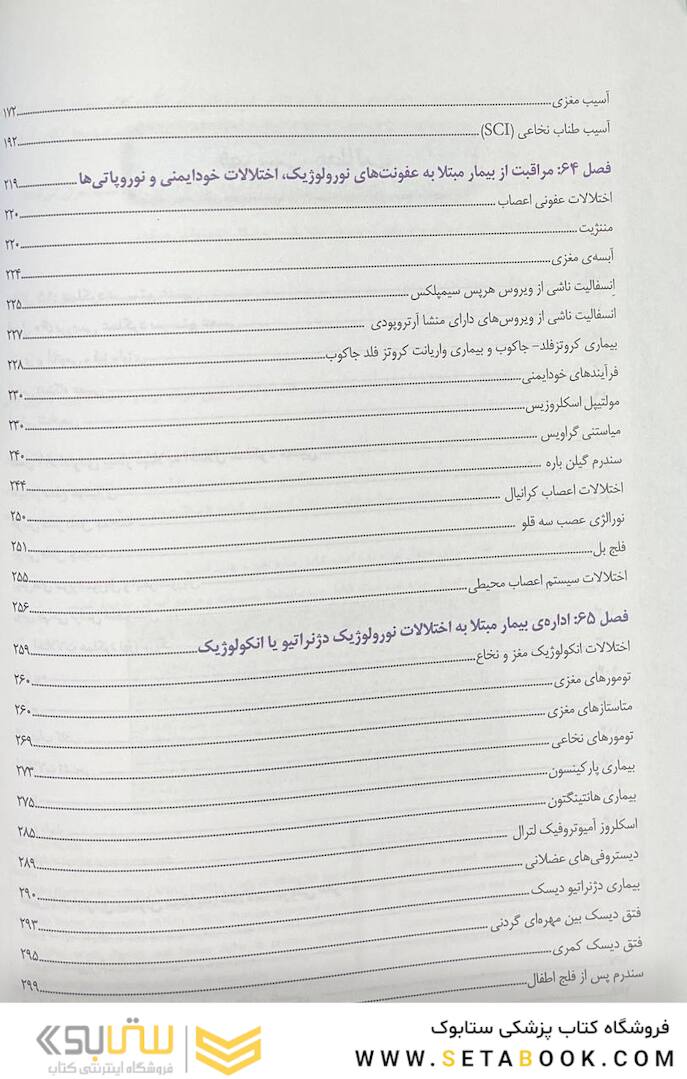 آسیب مغزی ..... ۱۷۲
آسیب طناب نخاعی (SCI) ..... ۱۹۲
فصل ۶۴: مراقبت از بیمار مبتلا به عفونت‌های نورولوژیک، اختلالات خودایمنی و نوروپاتی‌ها ..... ۲۱۹
اختلالات عفونی اعصاب ..... ۲۲۰
مننژیت ..... ۲۲۰
آبسه‌ی مغزی ..... ۲۲۴
انسفالیت ناشی از ویروس هرپس سیمپلکس ..... ۲۲۵
انسفالیت ناشی از ویروس‌های دارای منشا آرتروپودی ..... ۲۲۷
بیماری کروتزفلد- جاکوب و بیماری واریانت کروتز فلد جاکوب ..... ۲۲۸
فرآیندهای خودایمنی ..... ۲۳۰
مولتیپل اسکلروزیس ..... ۲۳۰
میاستنی گراویس ..... ۲۴۰
سندرم گیلن باره ..... ۲۴۴
اختلالات اعصاب کرانیال ..... ۲۵۰
نورالژی عصب سه قلو ..... ۲۵۱
فلج بل ..... ۲۵۵
اختلالات سیستم اعصاب محیطی ..... ۲۵۶
فصل ۶۵: اداره‌ی بیمار مبتلا به اختلالات نورولوژیک دژنراتیو یا انکولوژیک ..... ۲۵۹
اختلالات انکولوژیک مغز و نخاع ..... ۲۶۰
تومورهای مغزی ..... ۲۶۰
متاستازهای مغزی ..... ۲۶۹
تومورهای نخاعی ..... ۲۷۳
بیماری پارکینسون ..... ۲۷۵
بیماری هانتینگتون ..... ۲۸۵
اسکلروز آمیوتروفیک لترال ..... ۲۸۹
دیستروفی‌های عضلانی ..... ۲۹۰
بیماری دژنراتیو دیسک ..... ۲۹۳
فتق دیسک بین مهره‌ای گردنی ..... ۲۹۵
فتق دیسک کمری ..... ۲۹۹
سندرم پس از فلج اطفال .....
فروشگاه کتاب پزشکی ستابوک
WWW.SETABOOK.COM
ستابوک
فروشگاه اینترنتی کتاب